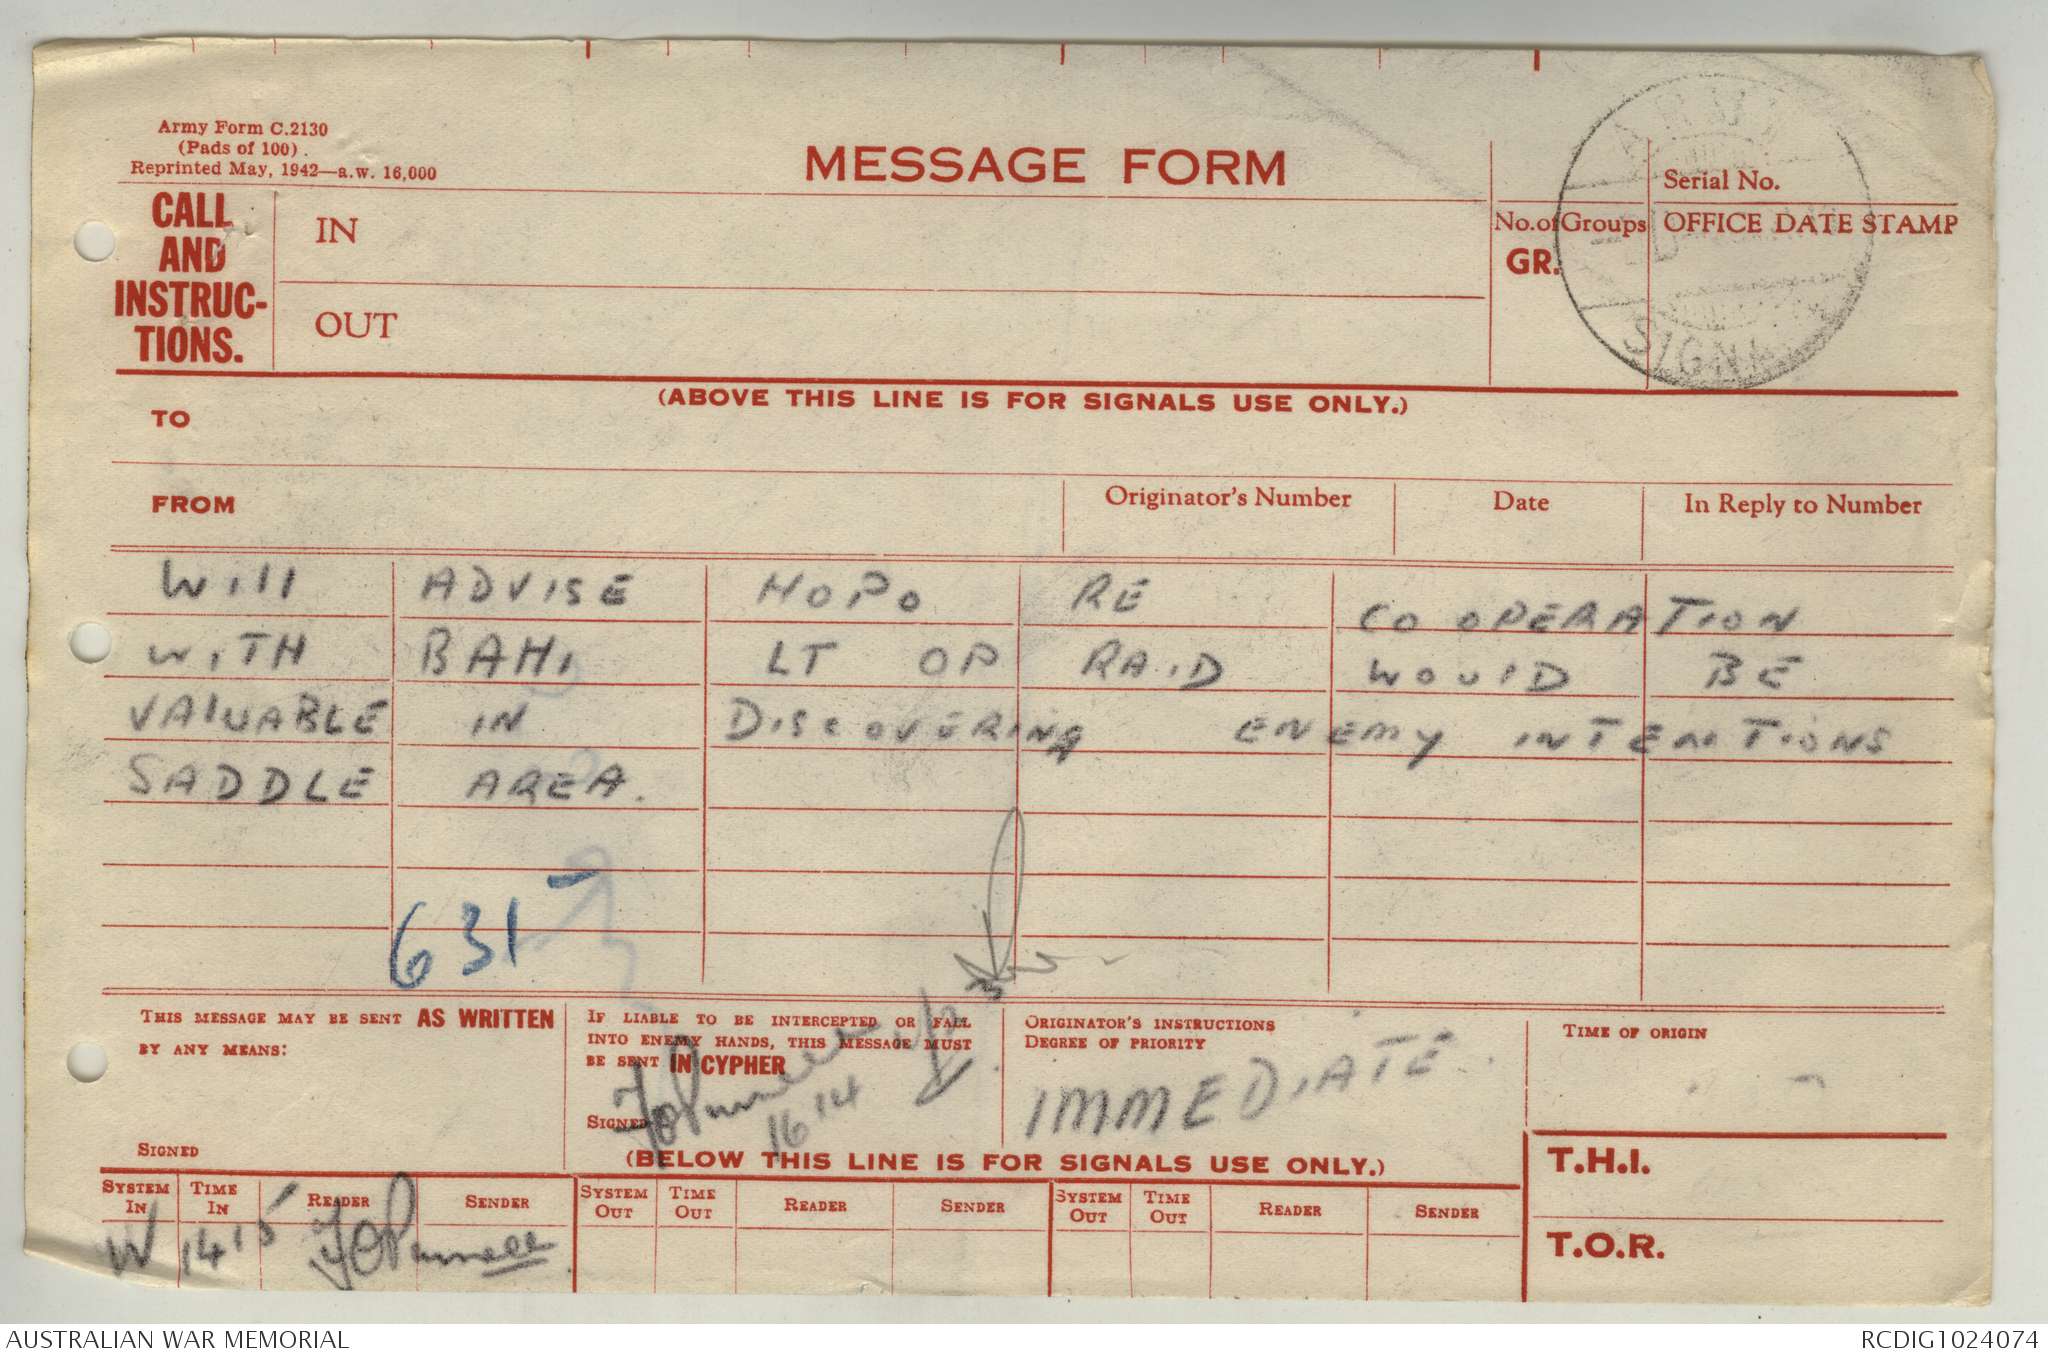 Army Form C.2130
(Pads of 100).
Reprinted May, 1942—a.w. 16,000
MESSAGE FORM
CALL
AND
INSTRUC-
TIONS.
IN
OUT
No. of Groups
GR.
Serial No.
OFFICE DATE STAMP
ARMY
SIGNA
(ABOVE THIS LINE IS FOR SIGNALS USE ONLY.)
TO
FROM
Originator's Number
Date
In Reply to Number
Will ADVISE HOPO RE CO OPERATION
WITH BAHI LT OP RAID WOULD BE
VALUABLE IN DISCOVERING ENEMY INTENTIONS
SADDLE AREA.
631
THIS MESSAGE MAY BE SENT AS WRITTEN
BY ANY MEANS:
SIGNED
IF LIABLE TO BE INTERCEPTED OR FALL
INTO ENEMY HANDS, THIS MESSAGE MUST
BE SENT IN CYPHER
SIGNED
1614
ORIGINATOR'S INSTRUCTIONS
DEGREE OF PRIORITY
IMMEDIATE.
TIME OF ORIGIN
(BELOW THIS LINE IS FOR SIGNALS USE ONLY.)
T.H.I.
T.O.R.
SYSTEM IN
TIME IN
READER
SENDER
SYSTEM OUT
TIME OUT
READER
SENDER
SYSTEM OUT
TIME OUT
READER
SENDER
W 1415
AUSTRALIAN WAR MEMORIAL
RCDIG1024074